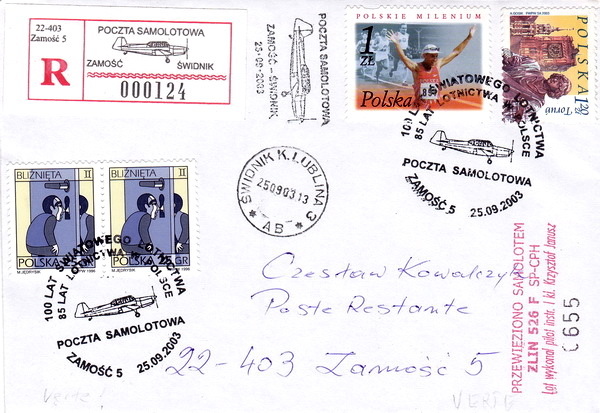 22-403
Zamość 5
POCZTA SAMOLOTOWA
R
ZAMOŚĆ ŚWIDNIK
000124
POCZTA SAMOLOTOWA
ZAMOŚĆ - ŚWIDNIK
25.09.2003
POLSKIE MILENIUM
1
ZŁ
Polska
POLSKA
120
Toruń
100 LAT ŚWIATOWEGO LOTNICTWA
85 LAT LOTNICTWA W POLSCE
POCZTA SAMOLOTOWA
ZAMOŚĆ 5 25.09.2003
BLIŹNIĘTA II
BLIŹNIĘTA II
POLSKA
GR
M.JEDRYSIK PWPW 1996
M.JEDRYSIK 1996
ŚWIDNIK K. LUBLINA 3
250903.13
* AB *
100 LAT ŚWIATOWEGO LOTNICTWA
85 LAT LOTNICTWA W POLSCE
POCZTA SAMOLOTOWA
ZAMOŚĆ 5 25.09.2003
Czesław Kowalczyk
Poste Restante
22-403 Zamość 5
PRZEWIEZIONO SAMOLOTEM
ZLIN 526 F SP-CPH
Lot wykonał pilot instr. I kl. Krzysztof Janusz
C655
verte!
VERTE